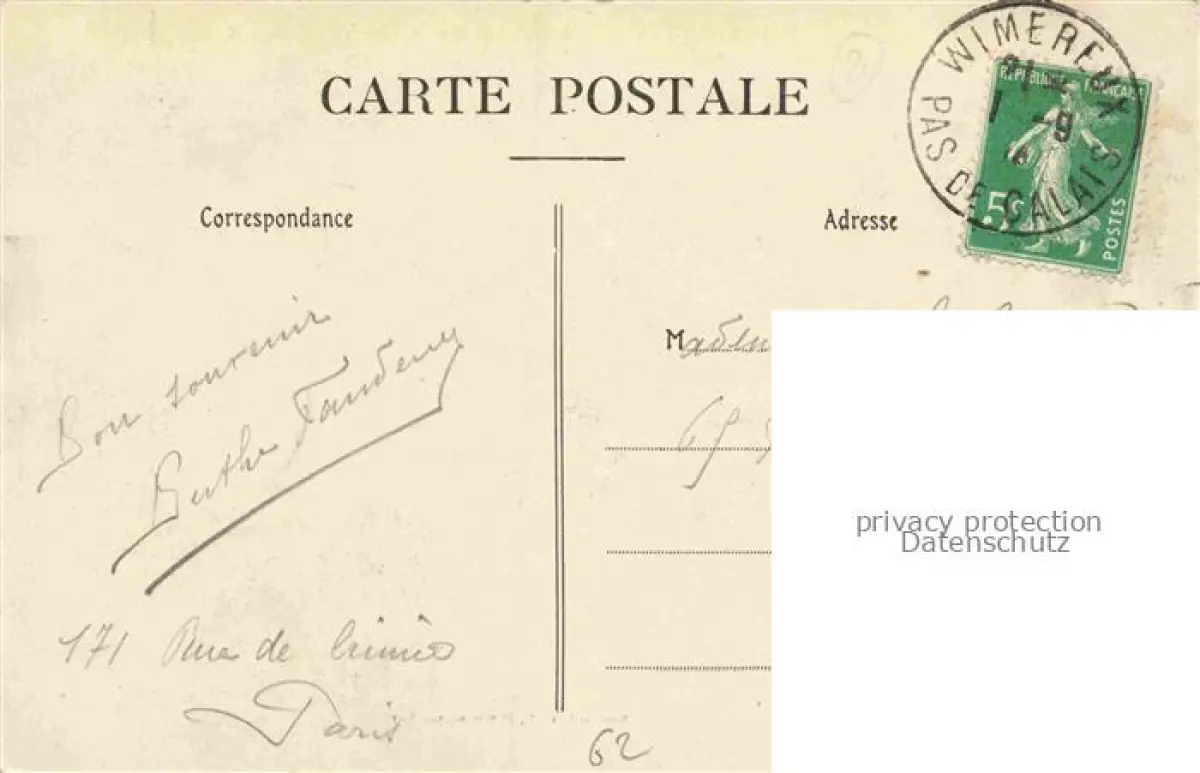 CARTE POSTALE
WIMEREUX
PAS DE CALAIS
1 -9
REPUBLIQUE FRANÇAISE
5c
POSTES
Correspondance
Adresse
Bon souvenir
Berthe
171 Rue de
Paris
M
62
privacy protection
Datenschutz